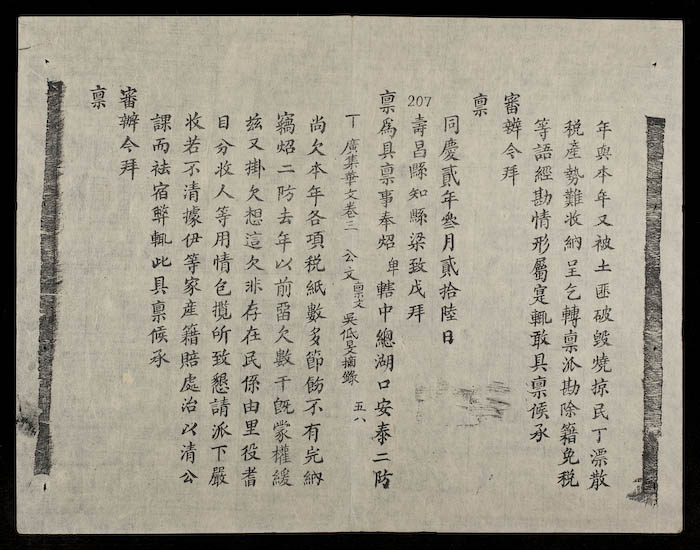 年與本年又被土匪破毀燒掠民丁漂散
稅產勢難收納呈乞轉禀派勘除籍免稅
等語經勘情形屬寔輒敢具禀候承
審辦今拜
禀
同慶貳年叄月貳拾陸日
207
壽昌縣知縣梁致戊拜
禀爲具禀事奉炤卑轄中總湖口安泰二防
丁 廣集華文卷三 公文 禀文 吳低旻摘錄 五八
尚欠本年各項稅紙數多節飭不有完納
竊炤二防去年以前畱欠數干旣蒙權緩
玆又掛欠想這欠非存在民係由里役耆
目分收人等用情包攬所致懇請派下嚴
收若不清據伊等家產籍賠處治以清公
課而祛宿弊輒此具禀候承
審辦今拜
禀